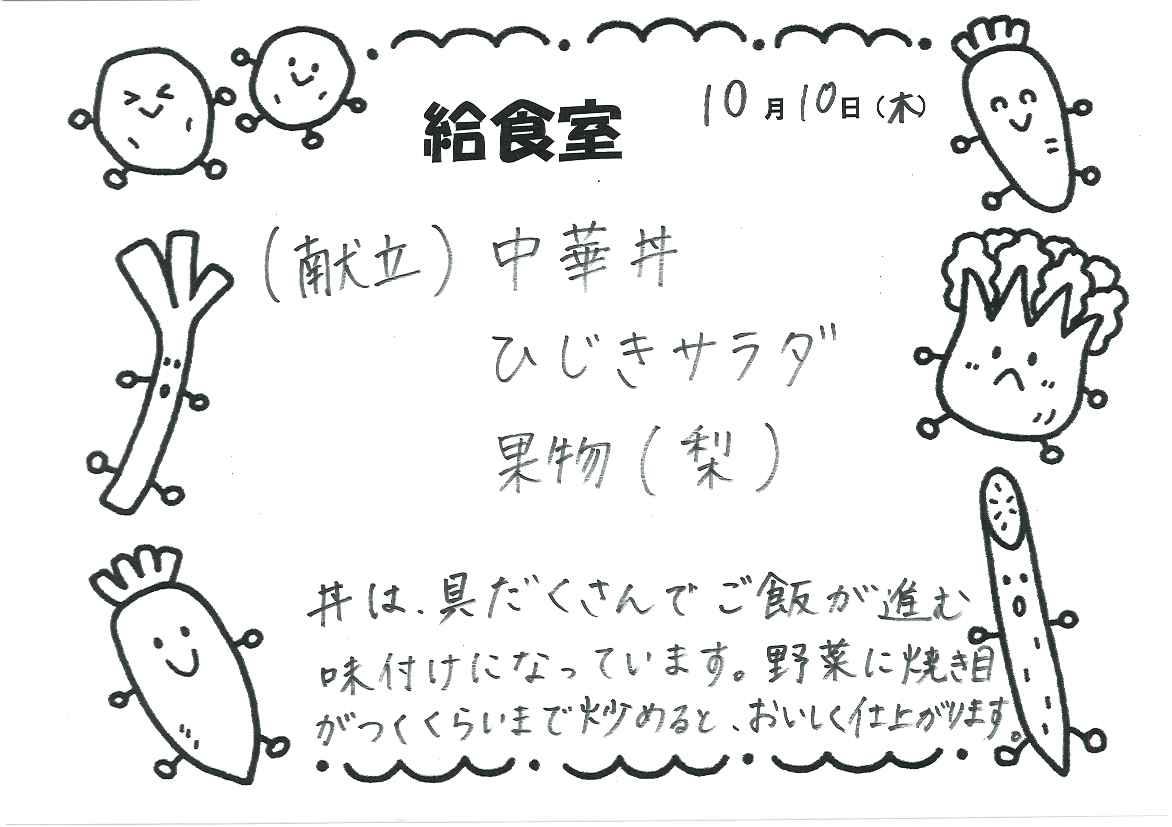 給食室
10月10日(木)
(献立)中華丼
ひじきサラダ
果物(梨)
丼は、具だくさんでご飯が進む
味付けになっています。野菜に焼き目
がつくくらいまで炒めると、おいしく仕上がります。